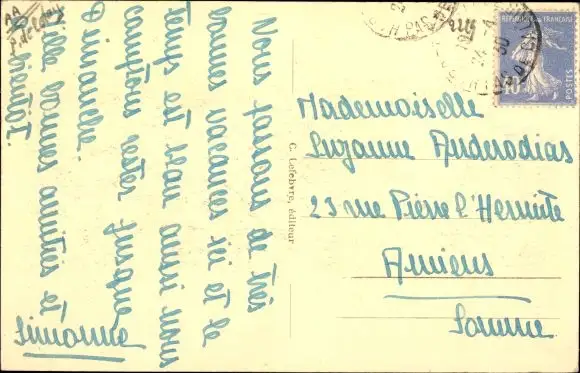 Nous passons de très
bonnes vacances ici et le
temps est beau aussi nous
comptons rester jusque
Dimanche.
Mille bonnes amitiés et
à bientôt.
Simonne
C. Lefebvre, éditeur
REPUBLIQUE FRANÇAISE
40c
POSTES
Mademoiselle
Suzanne Anderodias
23 rue Pierre l'Hermite
Amiens
Somme